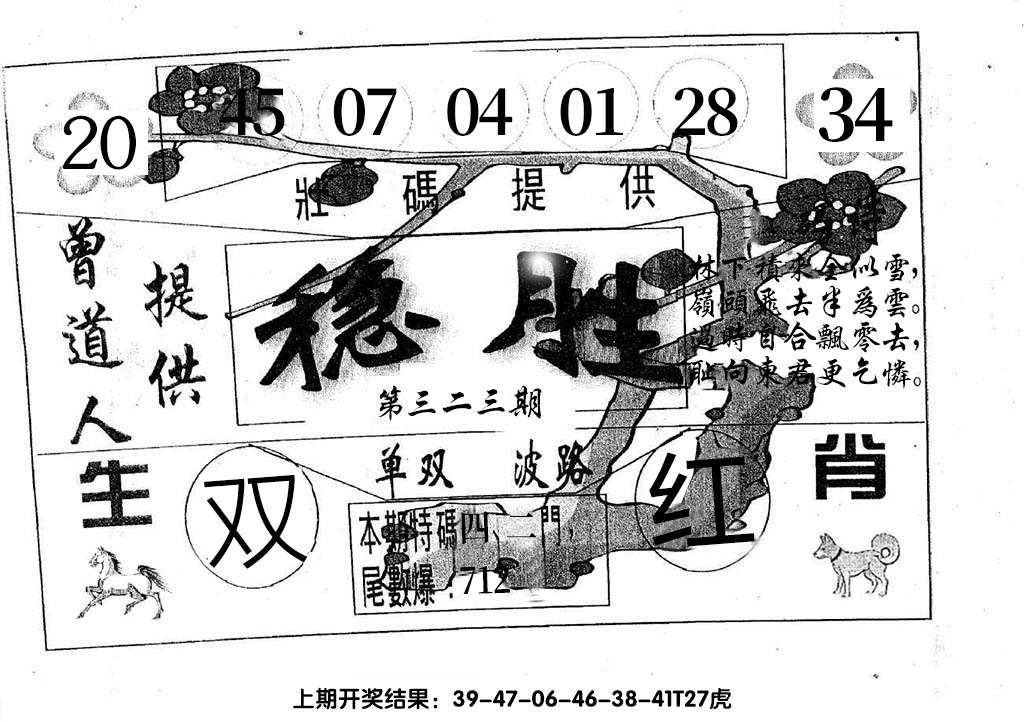 20 45 07 04 01 28 34
壯碼提供
曾道人
提供
稳胜
第三二三期
林下積來全似雪，
嶺頭飛去半爲雲。
過時自合飄零去，
耻向東君更乞憐。
单双 波路
生 肖
双 红
本期特碼四、二門，
尾數爆：712
上期开奖结果：39-47-06-46-38-41T27虎